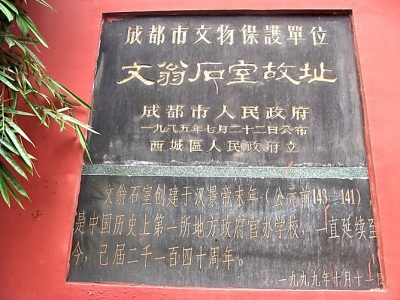 成都市文物保護單位
文翁石室故址
成都市人民政府
一九八五年七月二十二日公布
西城區人民政府立
文翁石室创建于汉景帝末年(公元前143—141)
是中国历史上第一所地方政府官办学校,一直延续至
今,已届二千一百四十周年。
一九九九年十月十一